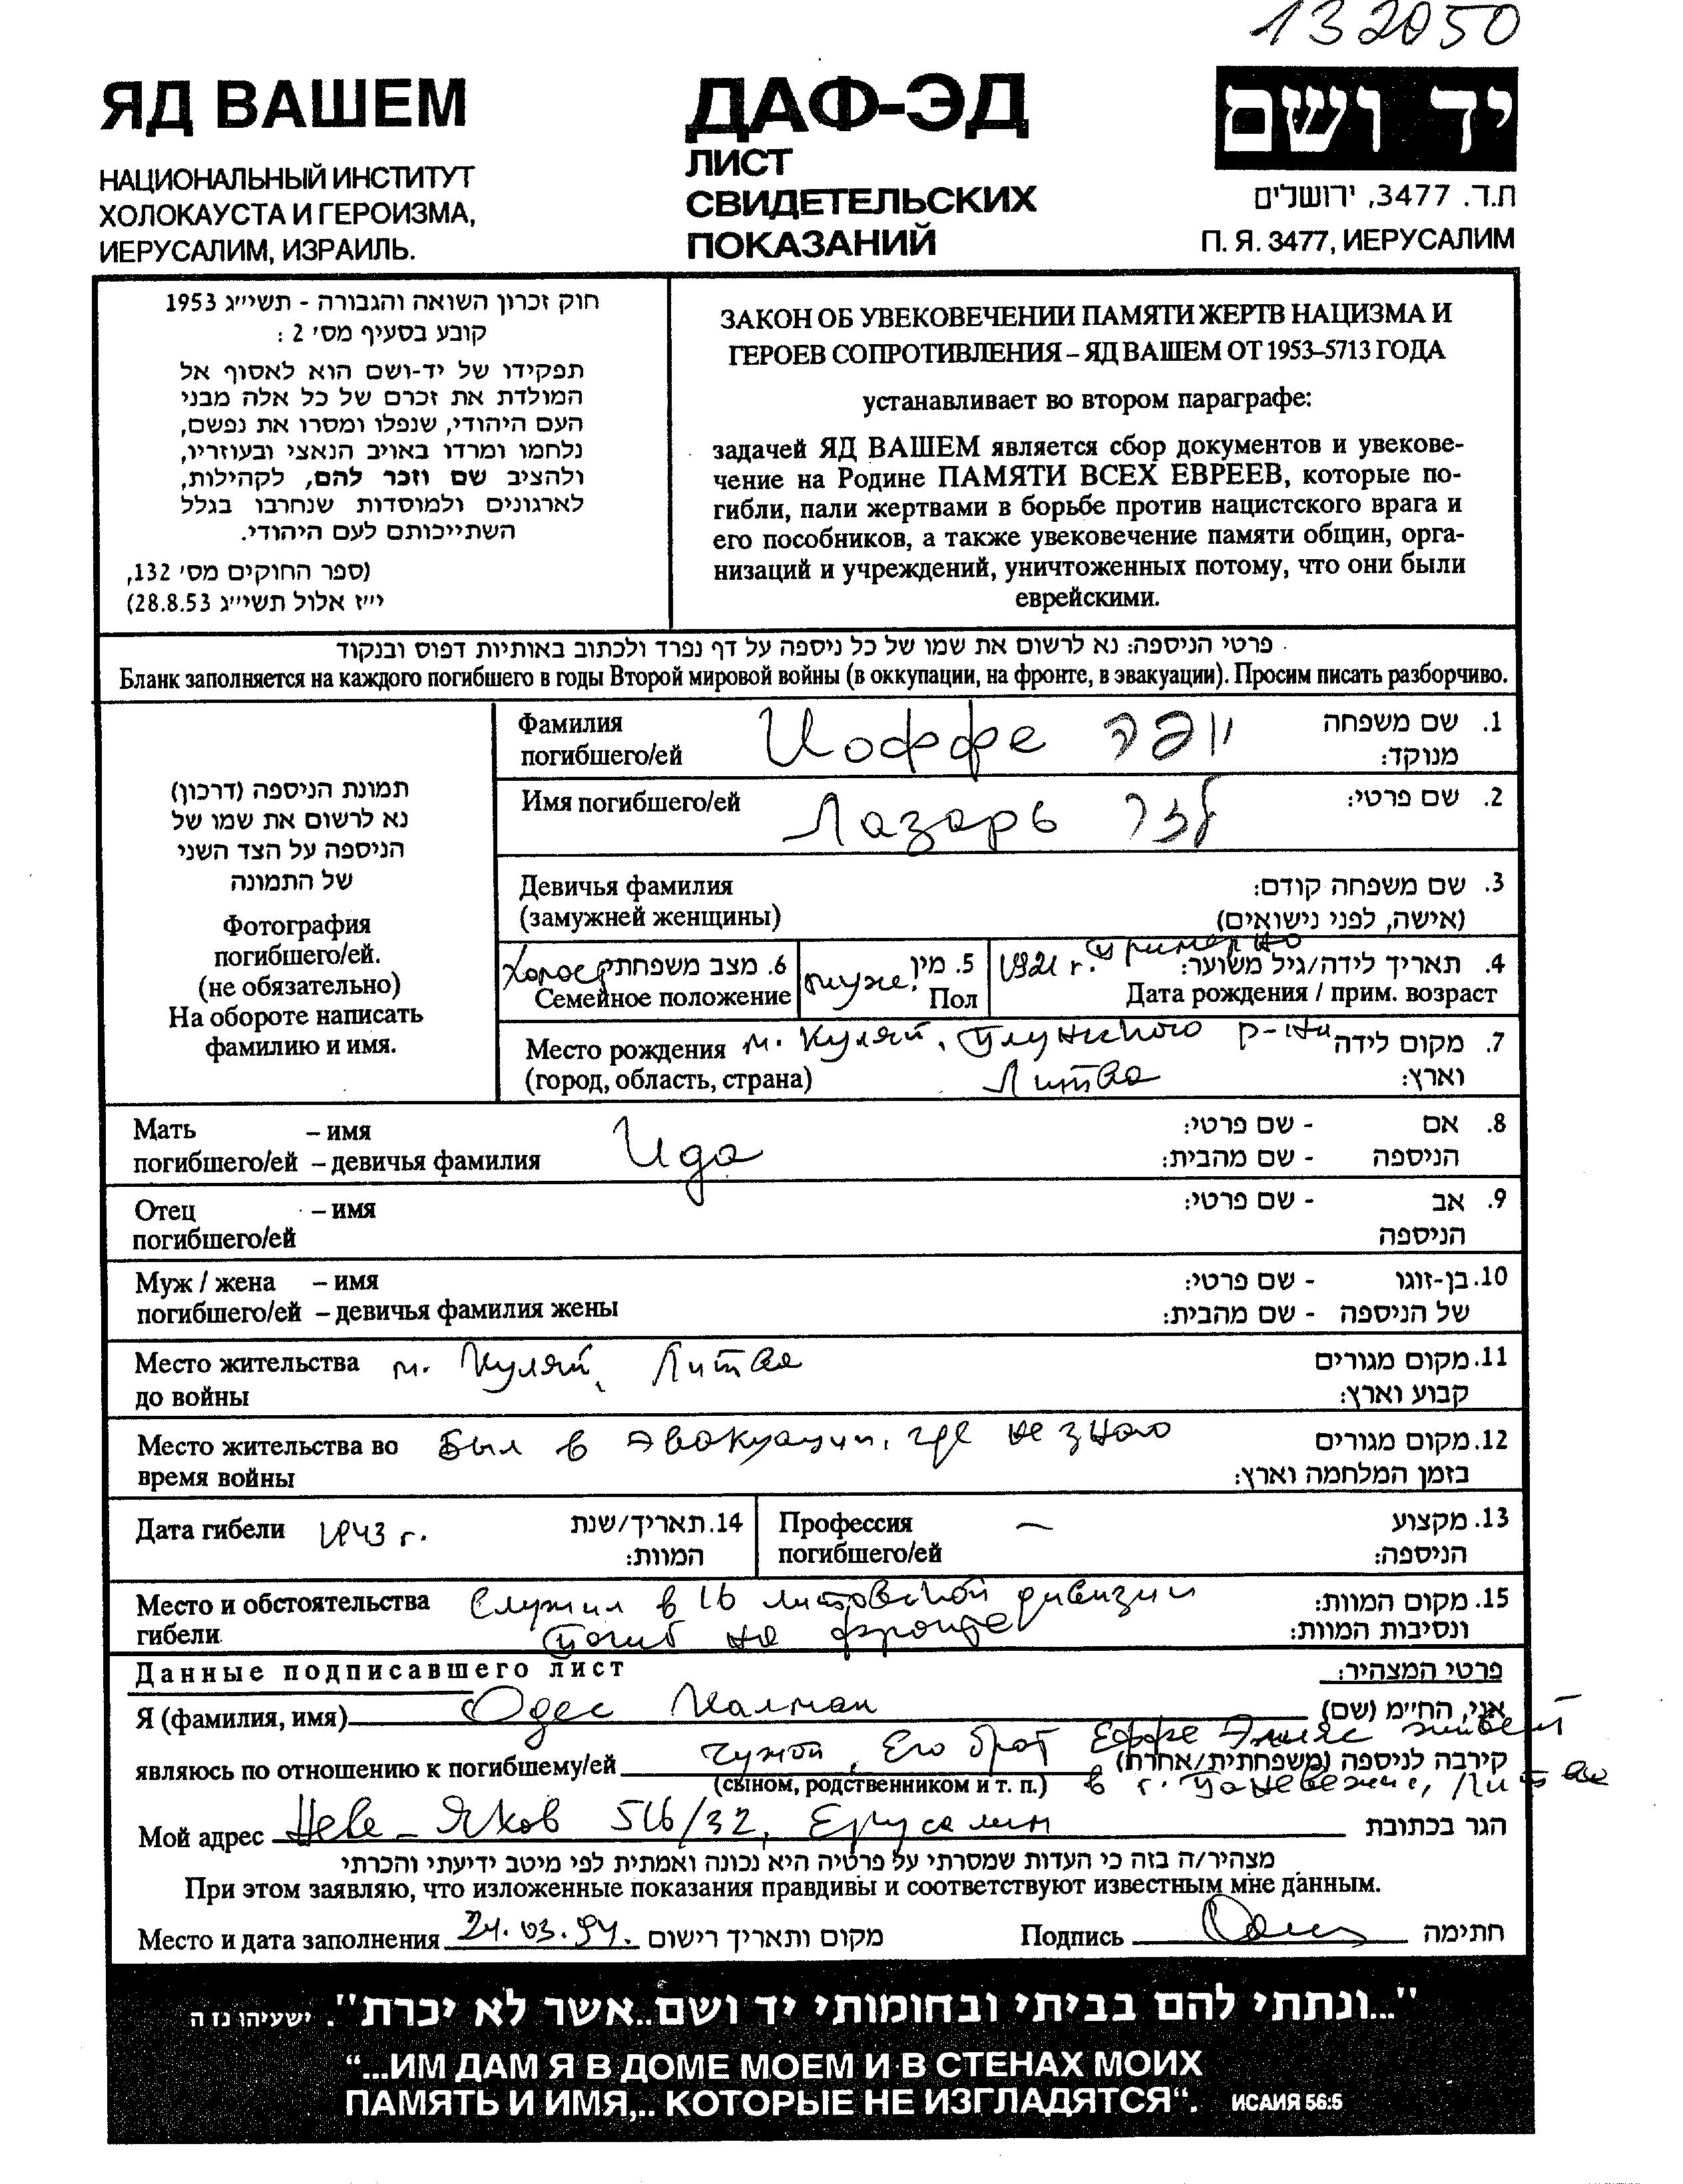 132050
ЯД ВАШЕМ
НАЦИОНАЛЬНЫЙ ИНСТИТУТ
ХОЛОКАУСТА И ГЕРОИЗМА,
ИЕРУСАЛИМ, ИЗРАИЛЬ.
ДАФ-ЭД
ЛИСТ
СВИДЕТЕЛЬСКИХ
ПОКАЗАНИЙ
יד ושם
ת.ד. 3477, ירושלים
П. Я. 3477, ИЕРУСАЛИМ
חוק זכרון השואה והגבורה - תשי״ג 1953
קובע בסעיף מס׳ 2 :
תפקידו של יד-ושם הוא לאסוף אל
המולדת את זכרם של כל אלה מבני
העם היהודי, שנפלו ומסרו את נפשם,
נלחמו ומרדו באויב הנאצי ובעוזריו,
ולהציב שם וזכר להם, לקהילות,
לארגונים ולמוסדות שנחרבו בגלל
השתייכותם לעם היהודי.
(ספר החוקים מס׳ 132,
י״ז אלול תשי״ג 28.8.53)
ЗАКОН ОБ УВЕКОВЕЧЕНИИ ПАМЯТИ ЖЕРТВ НАЦИЗМА И
ГЕРОЕВ СОПРОТИВЛЕНИЯ – ЯД ВАШЕМ ОТ 1953–5713 ГОДА
устанавливает во втором параграфе:
задачей ЯД ВАШЕМ является сбор документов и увекове-
чение на Родине ПАМЯТИ ВСЕХ ЕВРЕЕВ, которые по-
гибли, пали жертвами в борьбе против нацистского врага и
его пособников, а также увековечение памяти общин, орга-
низаций и учреждений, уничтоженных потому, что они были
еврейскими.
פרטי הניספה: נא לרשום את שמו של כל ניספה על דף נפרד ולכתוב באותיות דפוס ובנקוד
Бланк заполняется на каждого погибшего в годы Второй мировой войны (в оккупации, на фронте, в эвакуации). Просим писать разборчиво.
תמונת הניספה (דרכון)
נא לרשום את שמו של
הניספה על הצד השני
של התמונה
Фотография
погибшего/ей.
(не обязательно)
На обороте написать
фамилию и имя.
Фамилия Иоффе יופה 1. שם משפחה
погибшего/ей מנוקד:
Имя погибшего/ей Лазарь לזר 2. שם פרטי:
Девичья фамилия 3. שם משפחה קודם:
(замужней женщины) (אישה, לפני נישואים)
Холост 6. מצב משפחתי муж. 5. מין 1921 г. примерно 4. תאריך לידה/גיל משוער:
Семейное положение Пол Дата рождения / прим. возраст
Место рождения м. Куляй, р-на 7. מקום לידה
(город, область, страна) Литва וארץ:
Мать – имя Ида 8. אם - שם פרטי:
погибшего/ей – девичья фамилия הניספה - שם מהבית:
Отец – имя 9. אב - שם פרטי:
погибшего/ей הניספה
Муж / жена – имя 10. בן-זוגו - שם פרטי:
погибшего/ей – девичья фамилия жены של הניספה - שם מהבית:
Место жительства м. Куляй, Литва 11. מקום מגורים
до войны קבוע וארץ:
Место жительства во Был в эвакуации, где не знаю 12. מקום מגורים
время войны בזמן המלחמה וארץ:
Дата гибели 1943 г. 14. תאריך/שנת Профессия – 13. מקצוע
המוות: погибшего/ей הניספה:
Место и обстоятельства Служил в 16 литовской дивизии 15. מקום המוות:
гибели погиб на фронте ונסיבות המוות:
Данные подписавшего лист פרטי המצהיר:
Я (фамилия, имя) Одес Калман אני, החי״מ (שם)
являюсь по отношению к погибшему/ей чужой, Его брат Еффе Эльяс живёт קירבה לניספה (משפחתית/אחרת)
(сыном, родственником и т. п.) в г. Паневежис, Литва
Мой адрес Неве-Яков 516/32, Ерусалим הגר בכתובת
מצהיר/ה בזה כי העדות שמסרתי על פרטיה היא נכונה ואמתית לפי מיטב ידיעתי והכרתי
При этом заявляю, что изложенные показания правдивы и соответствуют известным мне данным.
Место и дата заполнения 24.03.94. מקום ותאריך רישום Подпись חתימה
"...ונתתי להם בביתי ובחומותי יד ושם..אשר לא יכרת". ישעיהו נו ה
“...ИМ ДАМ Я В ДОМЕ МОЕМ И В СТЕНАХ МОИХ
ПАМЯТЬ И ИМЯ,.. КОТОРЫЕ НЕ ИЗГЛАДЯТСЯ“. ИСАИЯ 56:5